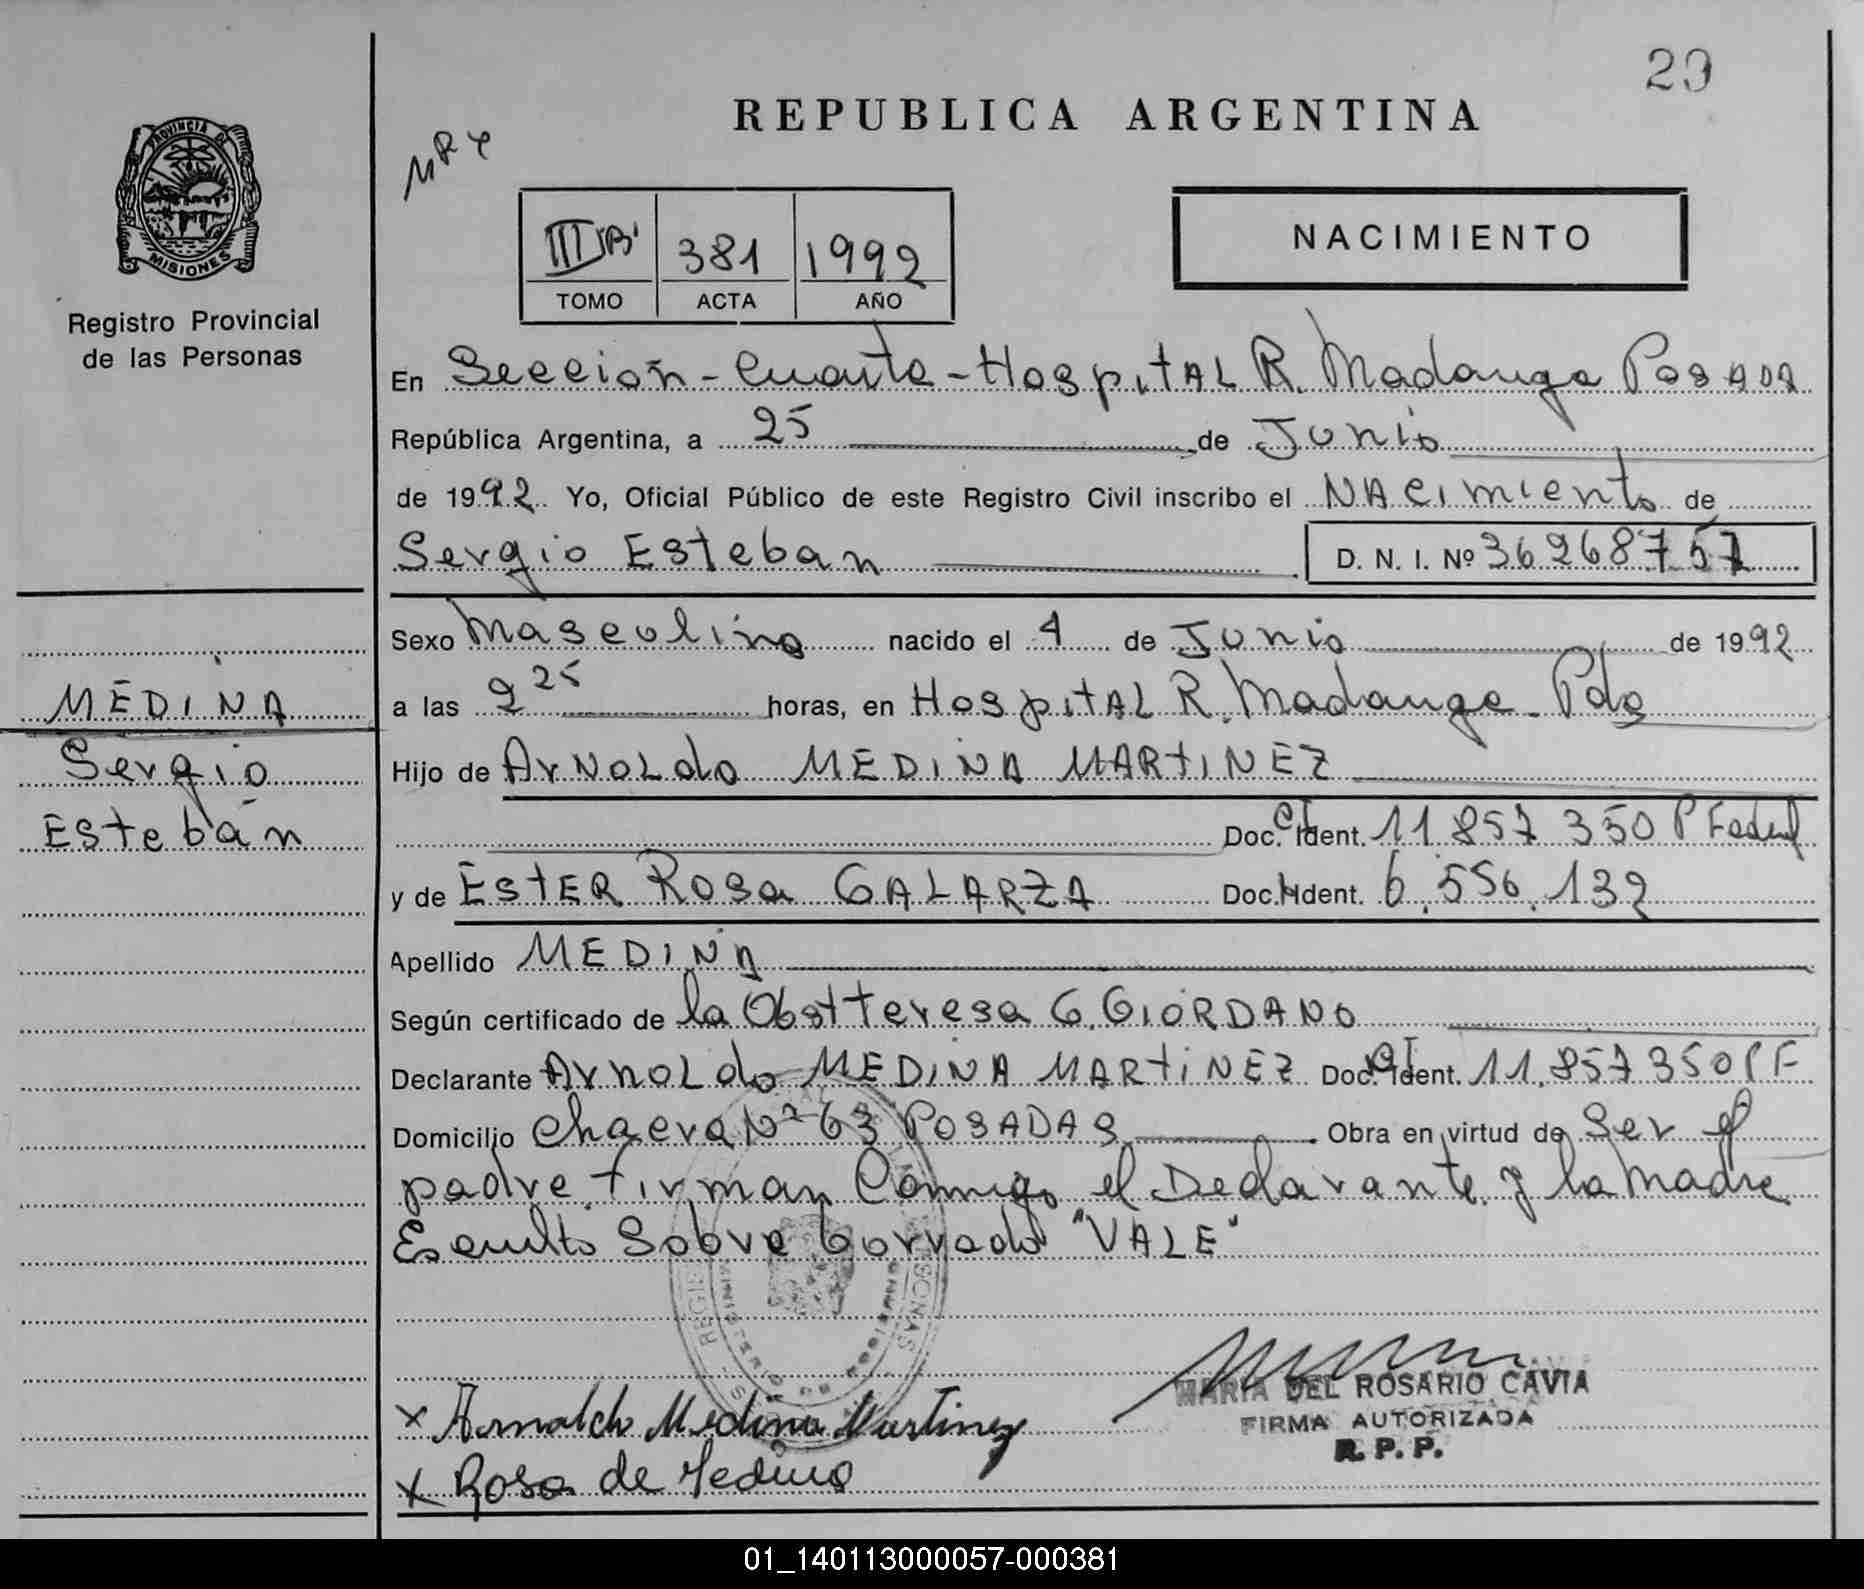 29
REPUBLICA ARGENTINA
PROVINCIA DE
MISIONES
Registro Provincial
de las Personas
381 1992
TOMO ACTA AÑO
NACIMIENTO
En Sección - Cuarta - Hospital R. Madariaga Posadas
República Argentina, a 25 de Junio
de 1992. Yo, Oficial Público de este Registro Civil inscribo el NAcimiento de
Sergio Esteban
D. N. I. Nº 36268757
Sexo Masculino nacido el 4 de Junio de 1992
MEDINA
a las 2 25 horas, en HospitAL R. Madariaga - Pdas
Sergio
Hijo de ArNoLdo MEDINA MARTINEZ
Esteban
Doc. CI Ident. 11.857 350 P Federal
y de ESTER Rosa GALARZA Doc. Ident. 6.556.132
Apellido MEDINA
Según certificado de la Obstteresa G. GIORDANO
Declarante ArnoLdo MEDINA MARTINEZ Doc. CI Ident. 11.857 350 P F
Domicilio Chacra Nº 63 POSADAS. Obra en virtud de Ser el
padre firman Conmigo el Declarante y la Madre
Escrito Sobre borrado "VALE"
MARIA DEL ROSARIO CAVIA
FIRMA AUTORIZADA
R. P. P.
x Arnoldo Medina Martinez
x Rosa de Medina
01_140113000057-000381